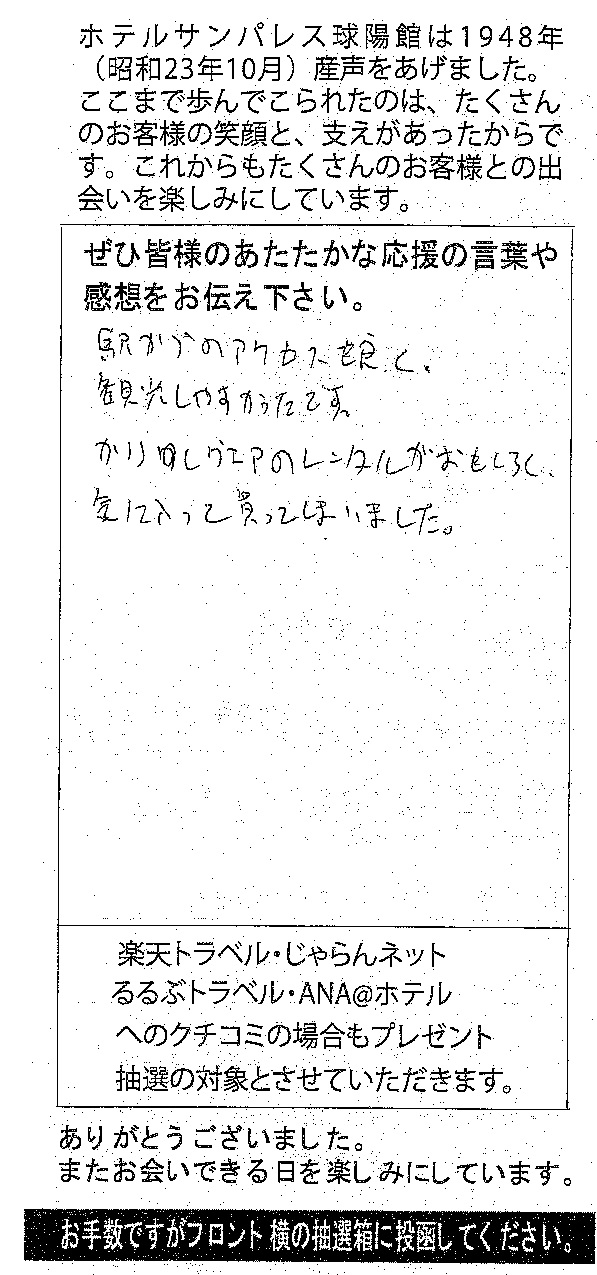 ホテルサンパレス球陽館は1948年
（昭和23年10月）産声をあげました。
ここまで歩んでこられたのは、たくさん
のお客様の笑顔と、支えがあったからで
す。これからもたくさんのお客様との出
会いを楽しみにしています。
ぜひ皆様のあたたかな応援の言葉や
感想をお伝え下さい。
駅からのアクセス良く、
観光しやすかったです。
かりゆしウエアのレンタルがおもしろく、
気に入って買ってしまいました。
楽天トラベル・じゃらんネット
るるぶトラベル・ANA@ホテル
へのクチコミの場合もプレゼント
抽選の対象とさせていただきます。
ありがとうございました。
またお会いできる日を楽しみにしています。
お手数ですがフロント横の抽選箱に投函してください。